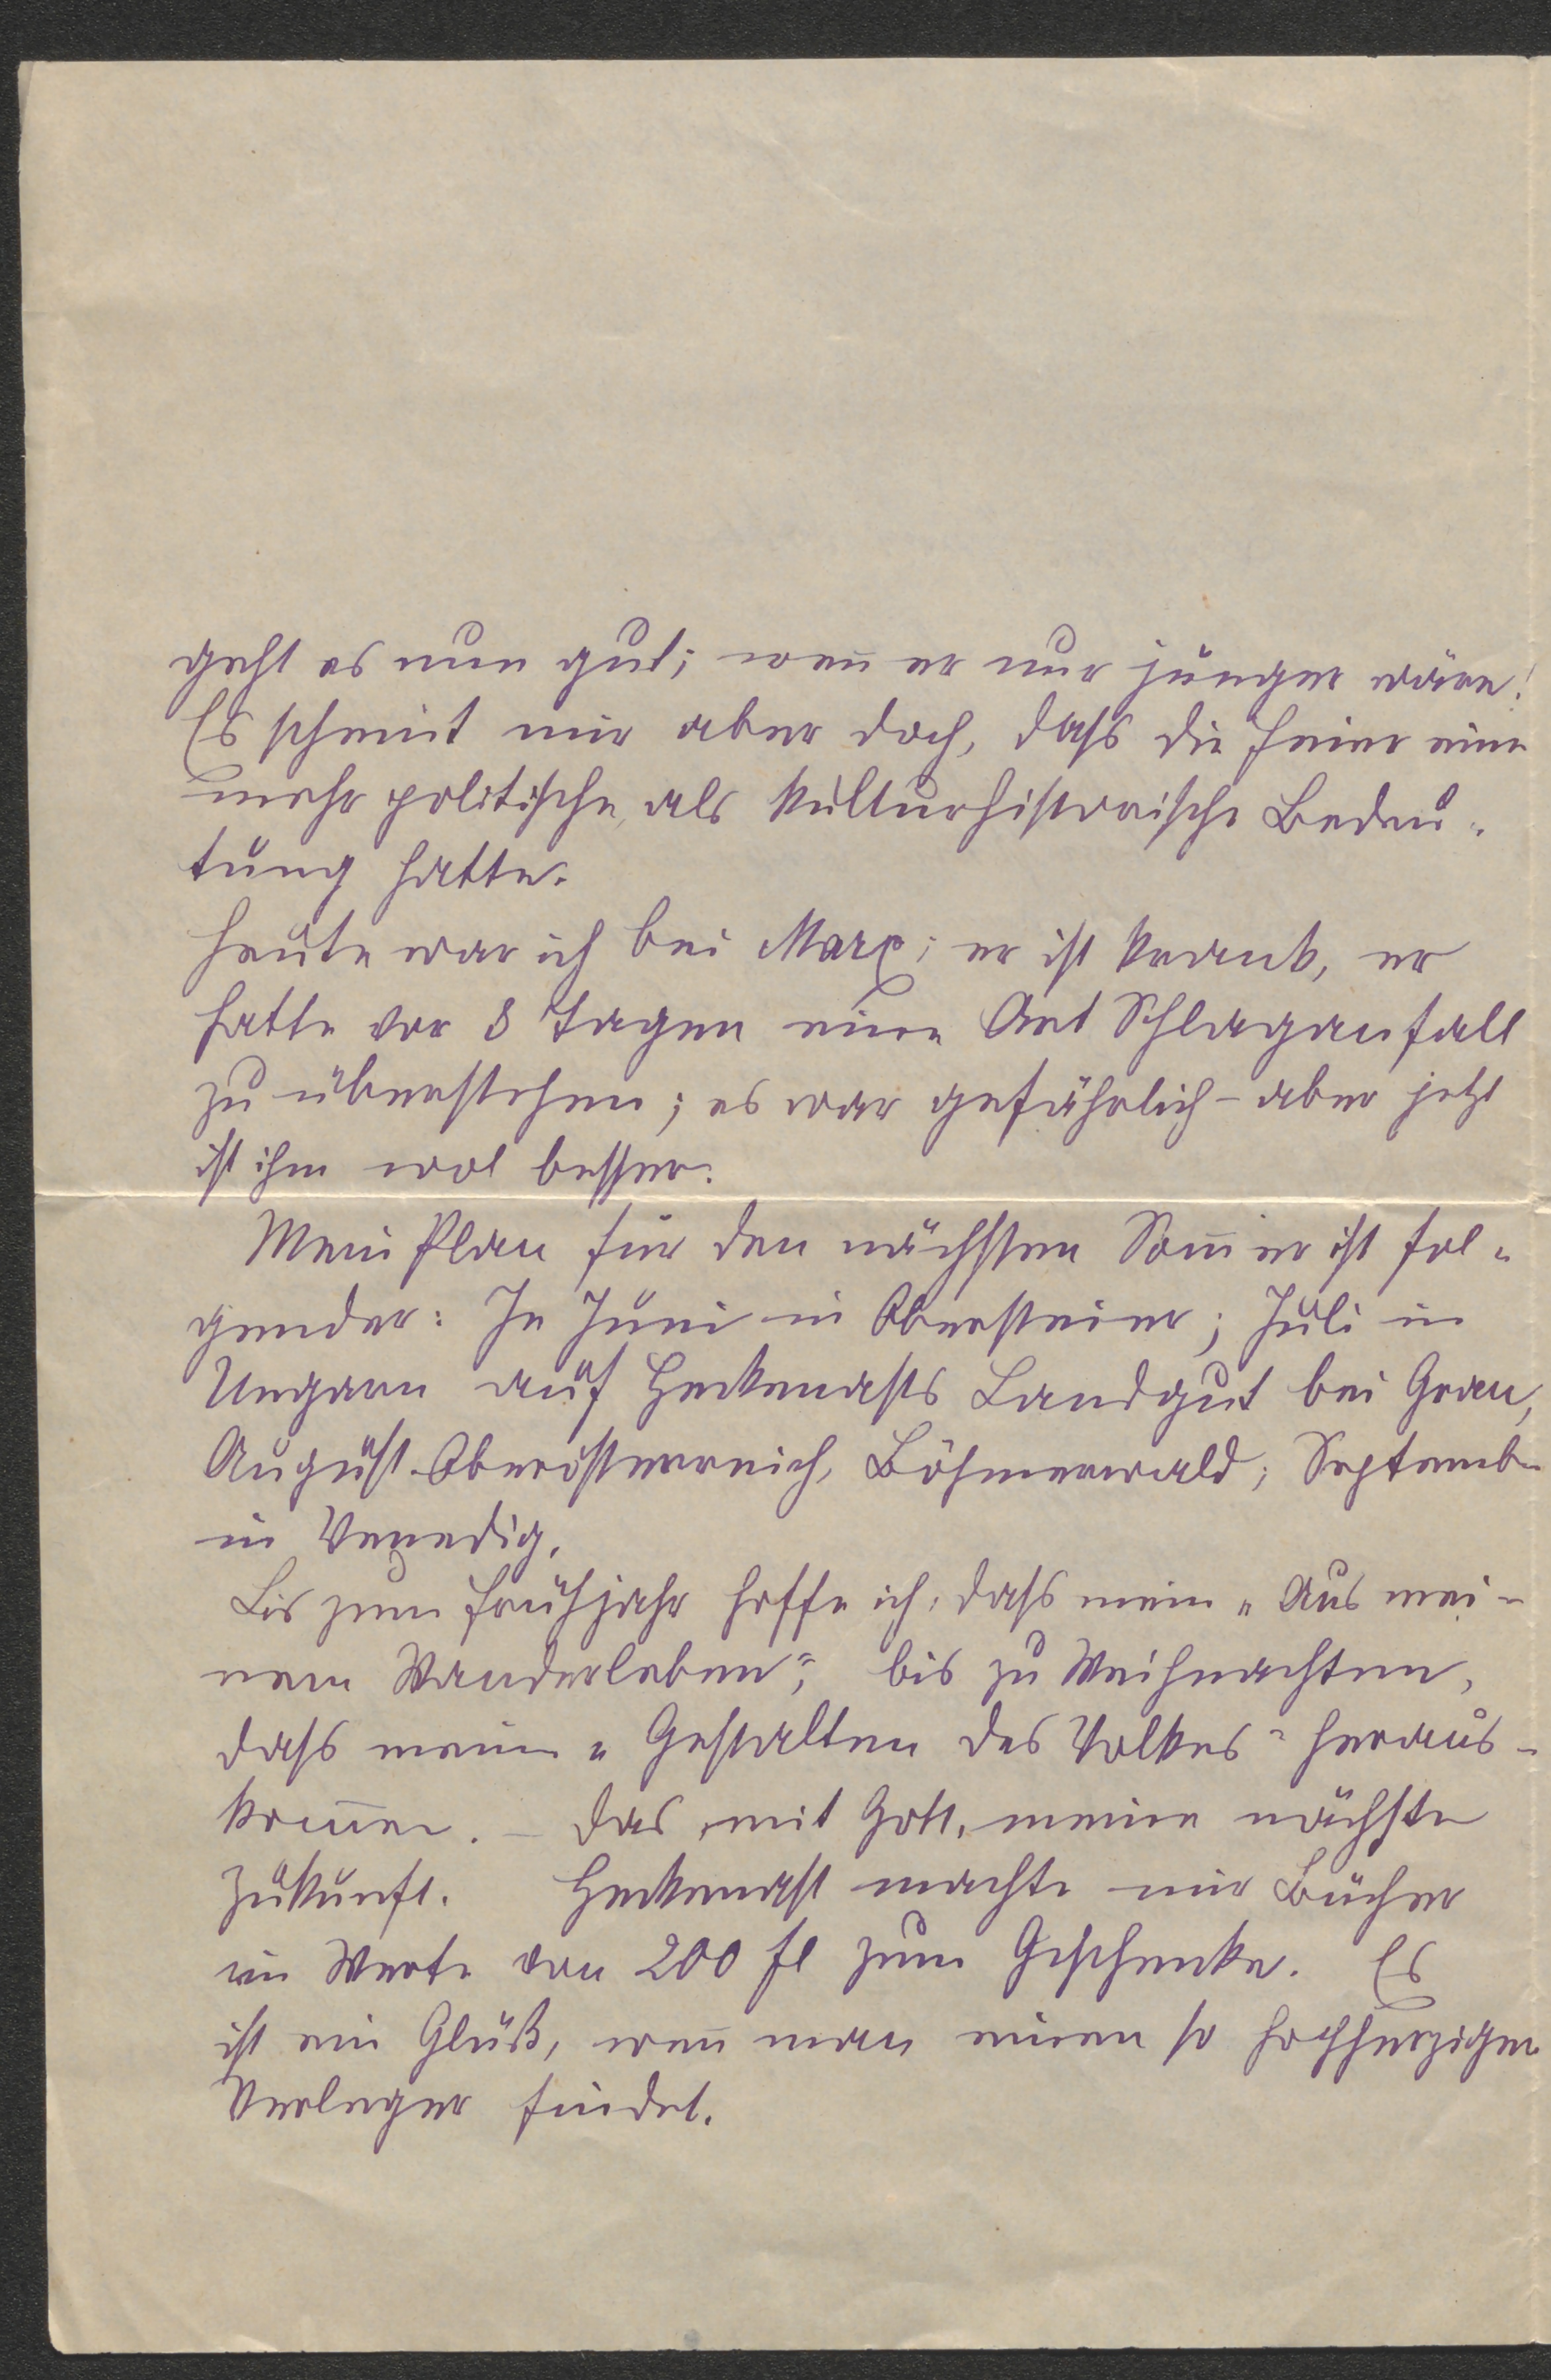 geht es nun gut; wen̄ er nur jünger wäre!
Es scheint mir aber doch, dass die Feier eine
mehr politische, als kulturhistorische Bedeu-
tung hatte.
Heute war ich bei Marx; er ist krank, er
hatte vor 8 Tagen eine Art Schlaganfall
zu überstehen; es war gefährlich – aber jetzt
ist ihm wol besser.
Mein Plan für den nächsten Som̄er ist fol-
gender: In Juni in Obersteier; Juli in
Ungarn auf Heckenasts Landgut bei Gran,
August Oberösterreich, Böhmerwald; Septemb
in Venedig.
Bis zum Frühjahr hoffe ich, dass mein „Aus mei-
nem Wanderleben", bis zu Weihnachten,
dass meine „Gestalten des Volkes" heraus-
kom̄en. – Das, mit Gott, meine nächste
Zukunft. Heckenast machte mir Bücher
im Werte von 200 fl zum Geschenke. Es
ist ein Glück, wen̄ man einen so hochherzigen
Verleger findet.